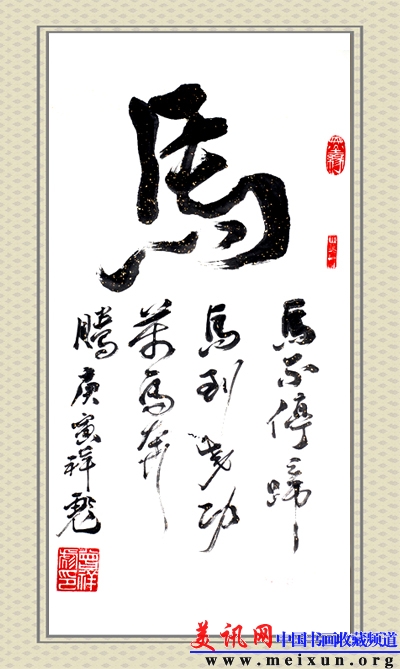 馬
馬不停蹄
馬到成功
萬馬奔
騰庚寅祥彪
美讯网中国书画收藏频道
www.meixun.org